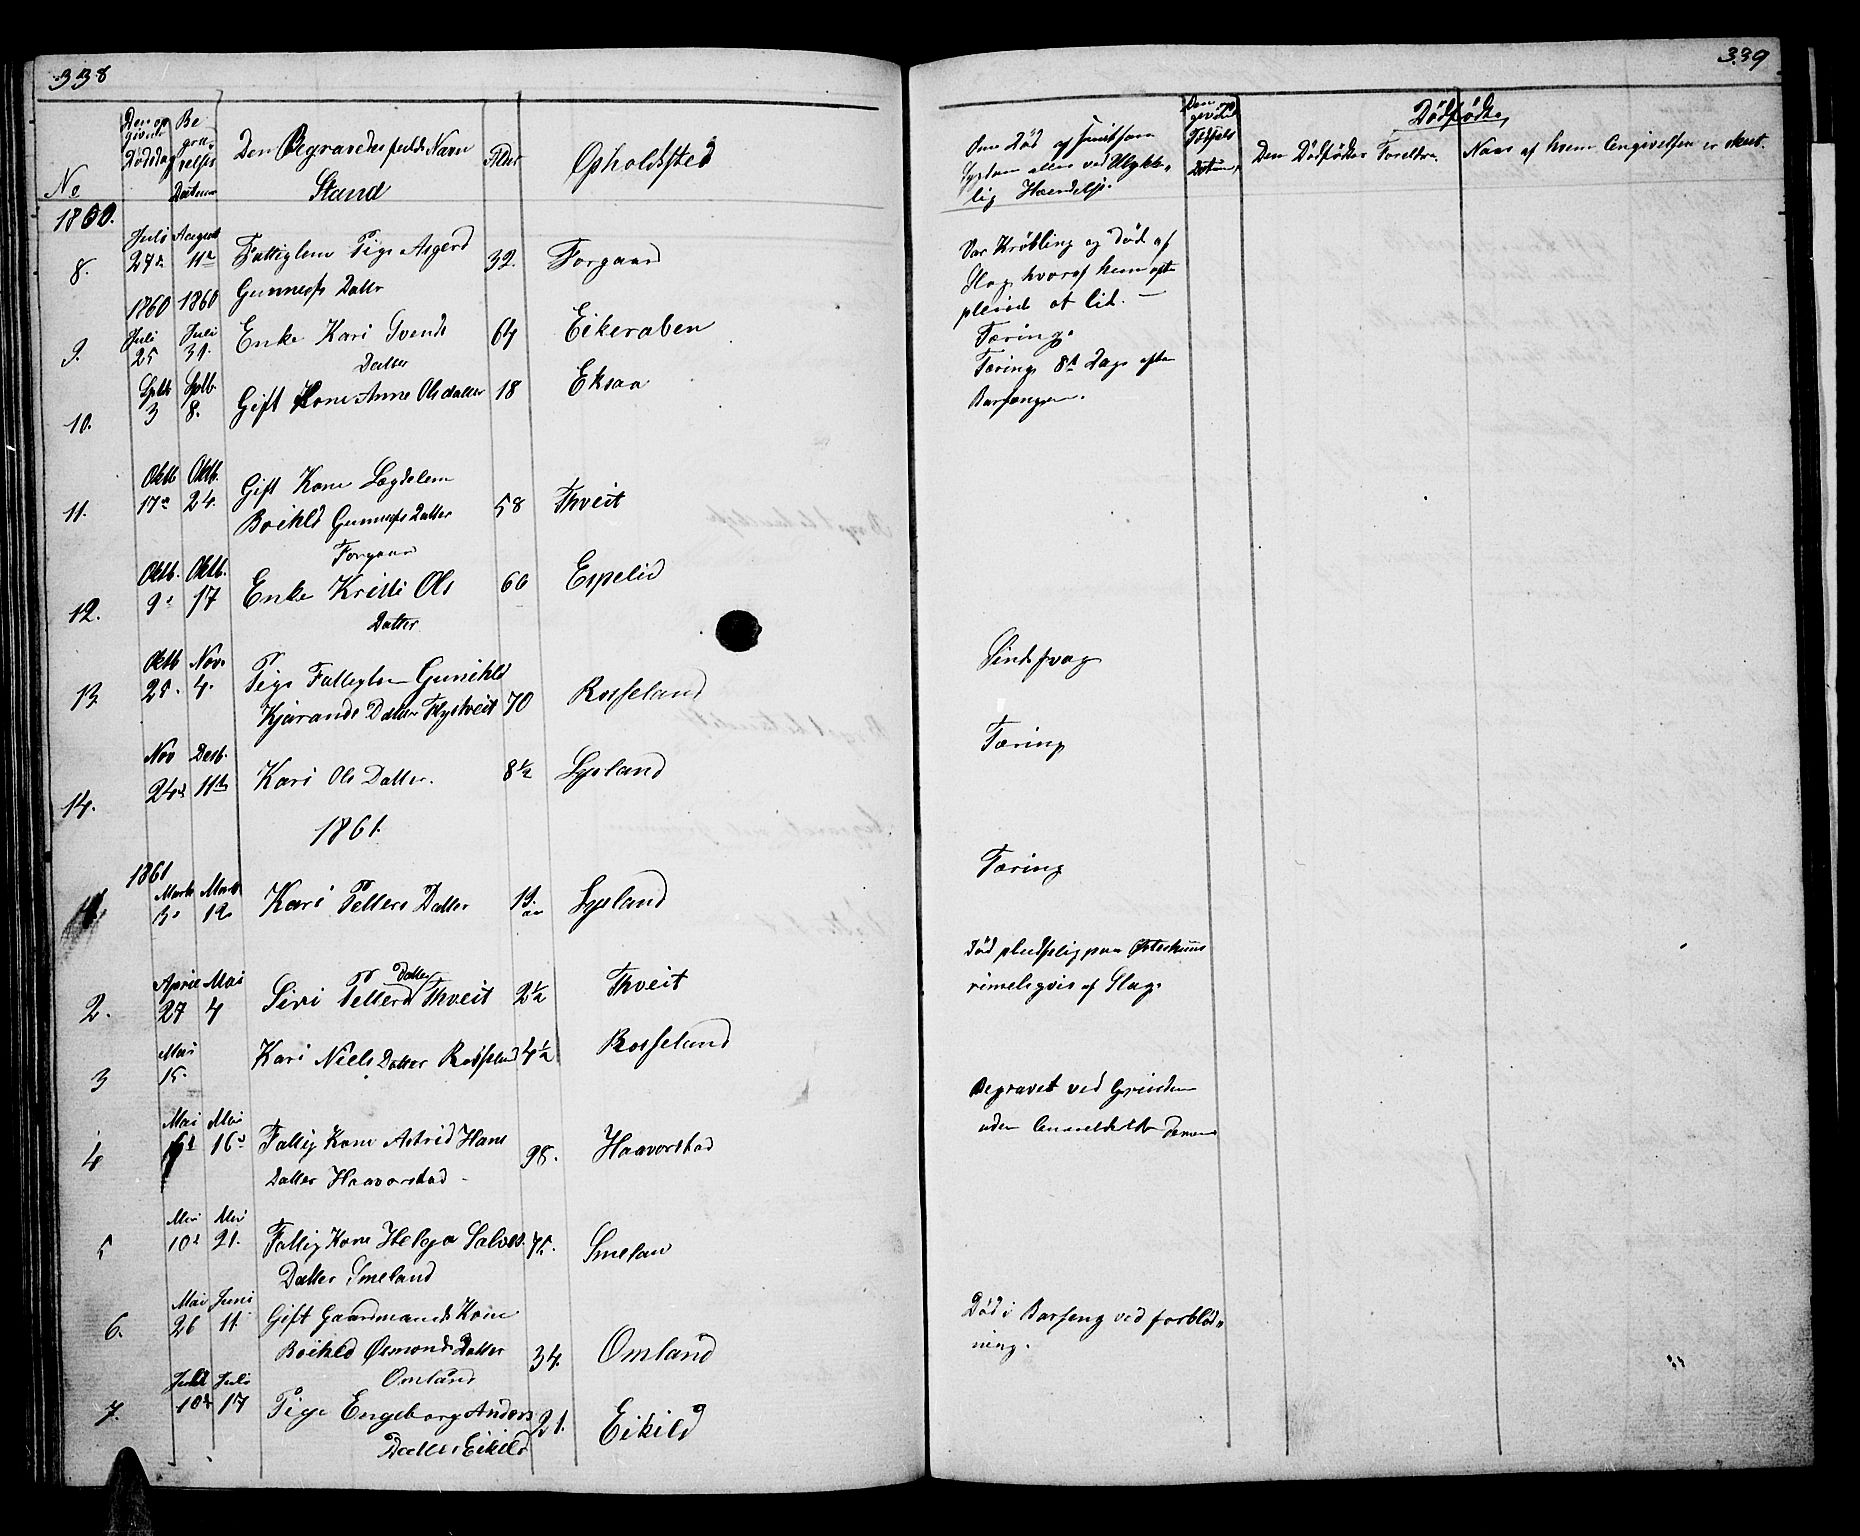 338
No
Den op
givende
Dødsdag
Be
gra-
velses
Datum
Den Begravedes fulde Navn
Stand
Alder
Opholdssted
1860.
8.
Juli
27de
August
11te
Fattiglem Pige Asgerd
Gunnulfs Datter
32.
Forgaard
1860 1860
9.
Juli
25
Juli
31.
Enke Kari Svends
Datter
64
Eikeraaben
10.
Sptb
3
Sptb.
8.
Gift Kone Anne Olsdatter
18
Eksaa
11.
Oktb
17de
Oktb.
24.
Gift Kone Lægdslem
Boihld Gunnufs Datter
Forgaar
58
Thveit
12.
Oktb.
9de
Oktb.
17
Enke Kristi Ols
Datter
66
Espelid
13
Oktb
25.
Nov.
4.
Pige Fattiglem Gunihld
Kjærands Datter
70
Rosseland
14.
Nov
24de
Desb.
11te
Kari Ols Datter.
8½
Lysland
1861.
1861
1.
Marts
Marts
12.
Kari Tellers Datter
19.
Lysland
2.
April
27
Mai
4
Siri Tellers Datter Thveit
2½
Thveit
3
Mai
15.
Kari Niels Datter Rosseland
4½
Rosseland
4
Mai
6te
Mai
16de
Fattig Kone Astrid Hans
Datter Haavorstad
98.
Haavorstad
5
Mai
10de
Mai
21.
Fattig Kone Helga Salves.
Datter Smeland
75.
Smelan
6.
Mai
26
Juni
11.
Gift Gaardmands Kone
Boihld Osmonds Datter
Omland
34.
Omland
7.
10de
Juli
17
Pige Engeborg Anders
Datter Eikild
21.
Eikild
339
Om Død af smitsom
Sygdom eller ved Ulykke-
lig Hændelse.
Dødfødte,
Den Dødfødtes Foreldre.
Naar af hvem Angivelsen er skeet.
Var Krøbling og død af
Slag, hvoraf hun ofte
pleiede at lid. —
Tæring.
Tæring 8te Dage efter
Barsengen.
Sindssvag
Tæring
Tæring
Død pludselig paa
rimeligvis af Slag
Begravet ved Grinden
uden
Død i Barseng ved forblød-
ning.